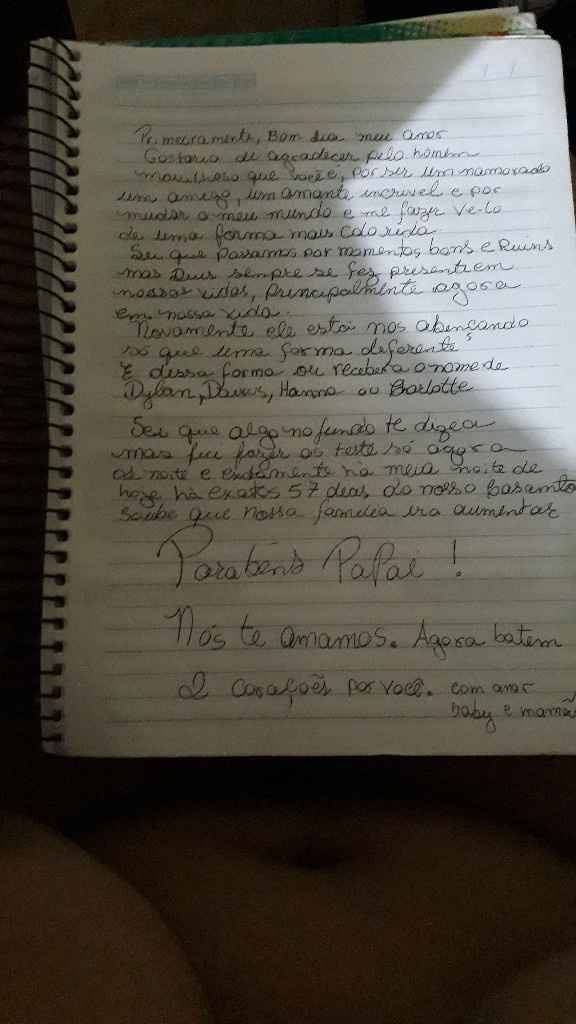 Primeiramente, Bom dia meu amor
Gostaria de agradecer pelo homem
maravilhoso que você e, por ser um namorado
um amigo, um amante incrivel e por
mudar o meu mundo e me fazer ve-lo
de uma forma mais colorida.
Sei que passamos por momentos bons e Ruins
mas Deus sempre se fez presente em
nossas vidas, principalmente agora
em nossa vida.
Novamente ele está nos abençoando
só que uma forma deferente
E dessa forma ou recebera o nome de
Dylan, Hanna ou Charlotte
Sei que algo no fundo te dizia
mas fui fazer os teste só agora
as noite e exatamente há meia noite de
hoje há exatos 57 dias do nosso Casamto
soube que nossa familia ira aumentar
Parabéns PaPai !
Nós te amamos. Agora batem
2 corações por você. com amor
baby e mamãe